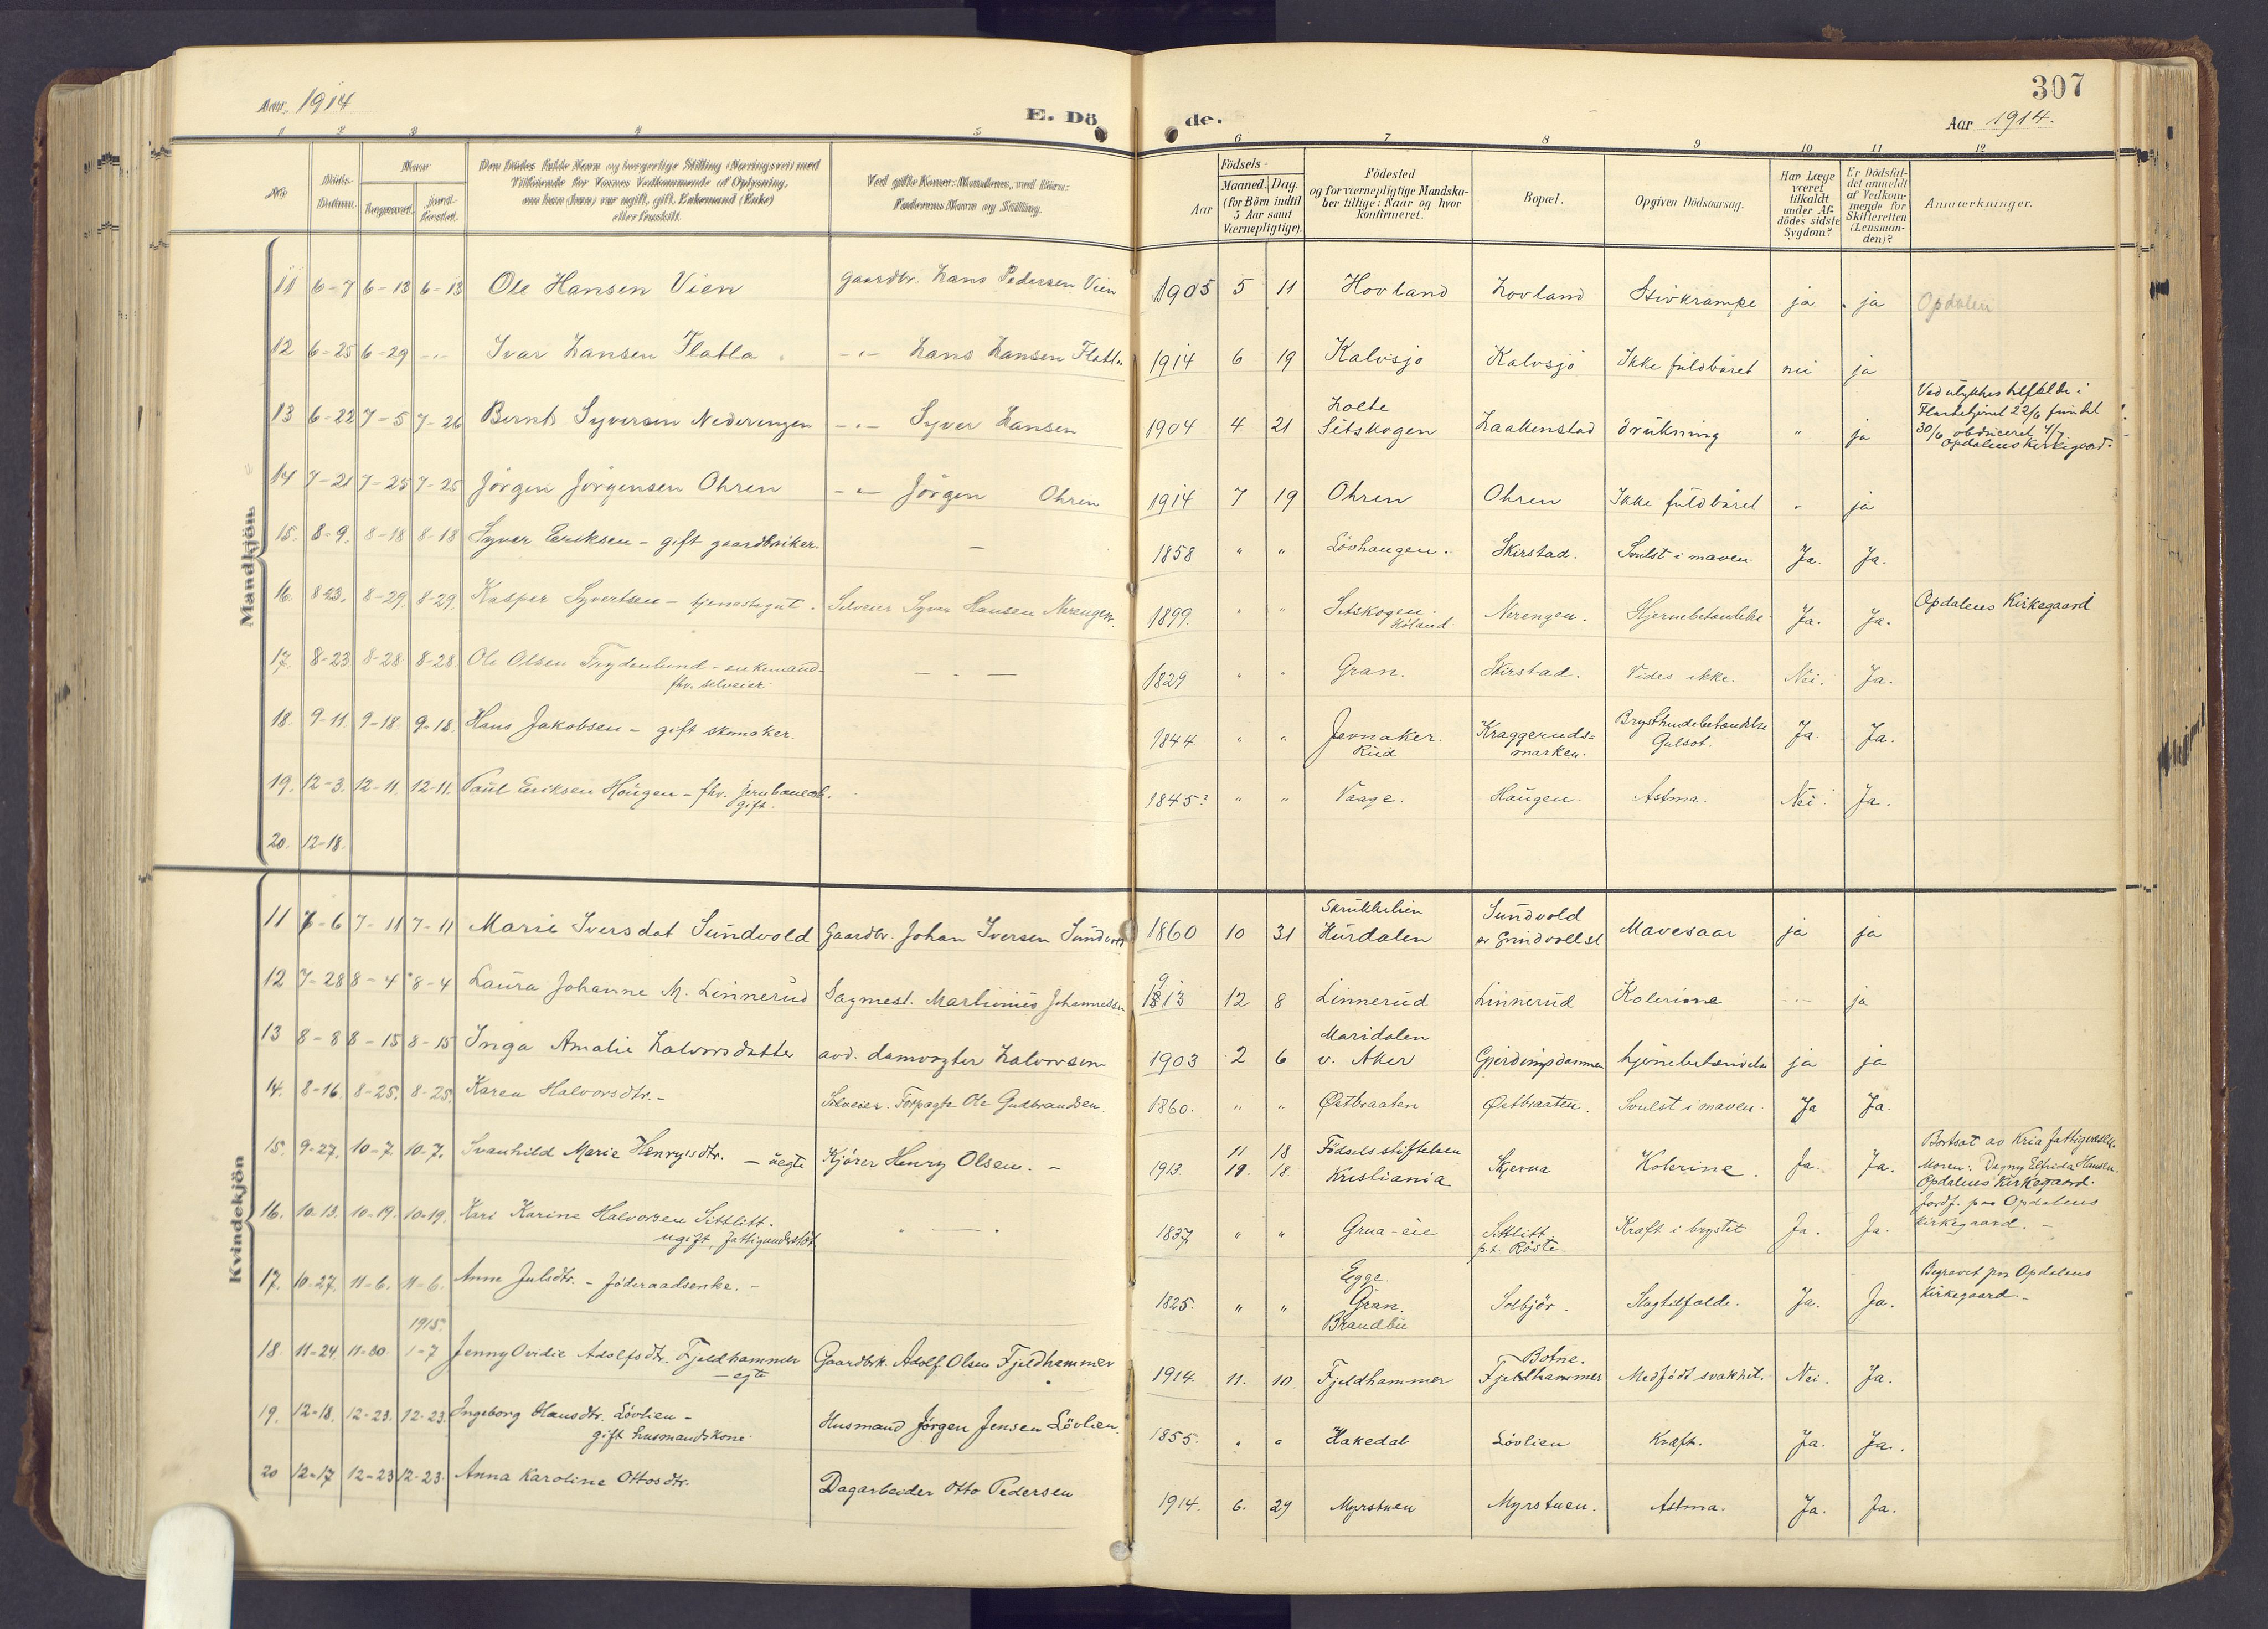 307
Aar 1914
E. Döde.
Aar 1914.
1 2 3 4 5 6 7 8 9 10 11 12
No.
Döds-Datum.
Naar
Begravet.
jord-fæstet.
Den Dødes fulde Navn og borgerlige Stilling (Næringsvei) med
Tilföiende for Voxnes Vedkommende af Oplysning,
om han (hun) var ugift, gift, Enkemand (Enke)
eller fraskilt.
Ved gifte Koner: Mandens, ved Börn:
Faderens Navn og Stilling.
Födsels-
Aar
Maaned. Dag.
(for Börn indtil
5 Aar samt
Værnepligtige).
Födested
og for værnepligtige Mandska-
ber tillige: Naar og hvor
konfirmeret.
Bopæl.
Opgiven Dödsaarsag.
Har Læge
været
tilkaldt
under Af-
dödes sidste
Sygdom?
Er Dödsfal-
det anmeldt
af Vedkom-
mende for
Skifteretten
(Lensman-
den)?
Anmærkninger.
Mandkjön.
11 6-7 6-13 6-13 Ole Hansen Vien Gaardbr. Hans Pedersen Vien 1905 5 11 Hovland Hovland Stivkrampe ja ja Opdalen
12 6-25 6-29 -"- Ivar Hansen Flatla -"- Hans Hansen Flatla 1914 6 19 Kalvsjø Kalvsjö Ikke fuldbåret nei ja
13 6-22 7-5 7-26 Bernt Syversen Nederengen -"- Syver Hansen 1904 4 21 Holte Setskogen Haakenstad drukning " ja Ved ulykkestilfælde i
22/6 fundet
30/6 obduceret 4/7
Opdalens Kirkegaard.
14 7-21 7-25 7-25 Jörgen Jörgensen Ohren -"- Jörgen Ohren 1914 7 19 Ohren Ohren Ikke fuldbåret " ja
15. 8-9. 8-18 8-18 Syver Eriksen - gift gaardbruker. - 1858 " " Lövhaugen. Skirstad. Svulst i maven. Ja. Ja.
16. 8-23. 8-29. 8-29. Kasper Syvertsen - tjenestegut. Selveier Syver Hansen Nerengen. 1899. " " Setskogen. Höland. Nerengen. Hjernebetændelse Ja. Ja. Opdalens Kirkegaard
17. 8-23 8-28 8-28. Ole Olsen Frydenlund - enkemand -
fhv. selveier - . - 1829 " " Gran. Skirstad. Vides ikke. Nei. Ja.
18. 9-11. 9-18. 9-18. Hans Jakobsen - gift skomaker. 1844 " " Jevnaker. Rud Kraggeruds=
marken. Brysthindebetændelse
Gulsot. Ja. Ja.
19. 12-3. 12-11. 12-11. Paul Eriksen Haugen - fhv. jernbanearb.
gift. 1845? " " Vaage. Haugen. Astma. Nei. Ja.
20. 12-18.
Kvindekjön
11 7-6 7-11 7-11 Marie Iversdat Sundvold Gaardbr. Johan Iversen Sundvold 1860 10 31 Skrukkelien
Hurdalen Sundvold
av Grindvoll st Mavesaar ja ja
12 7-28 8-4 8-4 Laura Johanne M. Linnerud Sagmest. Martinius Johannessen 1913 12 8 Linnerud Linnerud Kolerine -"- ja
13 8-8 8-15 8-15 Inga Amalie Halvorsdatter avd. damvogter Halvorsen 1903 2 6 Maridalen
v. Aker Gjerdingsdammen hjernebetændelse ja ja
14. 8-16. 8-25. 8-25. Karen Halvorsdtr. - Selveier. Forpagte Ole Gudbrandsen. 1860. " " Østbraaten Østbraaten. Svulst i maven. Ja Ja.
15. 9-27. 10-7 10-7. Svanhild Marie Henrysdtr. - uegte Kjörer Henry Olsen. - 1913. 11 18 Födselsstiftelsen
Kristiania Skjerva Kolerine. Ja. Ja. Bortsat av Kria fattigvæsen.
Moren: Dagny Elfrida Hansen.
Opdalens Kirkegaard.
16. 10-13. 10-19. 10-19. Kari Karine Halvorsen Sittlitt.
ugift, fattigunderstöt - 1837 " " Grua-eie Sittlitt
p.t. Röste Kræft i brystet Ja. Ja. Jordf. paa Opdalens
kirkegaard. -
17. 10-27. 11-6. 11-6. Anne Julsdtr. - föderaadsenke. - 1825. " " Egge.
Gran.
Brandbu Solbjör. Slagtilfælde. Ja. Ja. Begravet paa Opdalens
Kirkegaard. -
1915.
18. 11-24. 11-30 1-7 Jenny Ovidie Adolfsdtr. Fjeldhammer
- egte Gaardbrk. Adolf Olsen Fjeldhammer 1914. 11. 10. Fjeldhammer Botne.
Fjeldhammer Medfödt svakhet. Nei. Ja.
19. 12-18. 12-23. 12-23. Ingeborg Hansdtr. Lövlien -
gift husmandskone Husmand Jørgen Jensen Lövlien. 1855. " " Hakedal Lövlien Kræft. Ja. Ja.
20 12-17 12-23 12-23. Anna Karoline Ottosdtr. Dagarbeider Otto Pedersen 1914. 6. 29 Myrstuen Myrstuen. Astma. Ja. Ja.